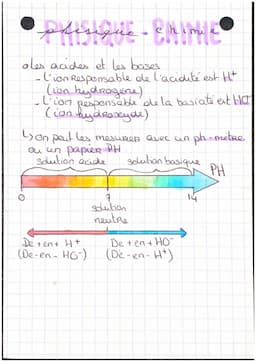 PHYSIQUE-CHIMIE
physique - chimie
o les acides et les bases
- l'ion responsable de l'acidité est H+
(ion hydrogène)
- l'ion responsable de la basicité est HO-
(ion hydroxyde)
↳ on peut les mesurer avec un ph-mètre
ou un papier PH
solution acide solution basique
PH
0 7 14
solution
neutre
De + en + H+ De + en + HO-
(De - en - HO-) (De - en - H+)